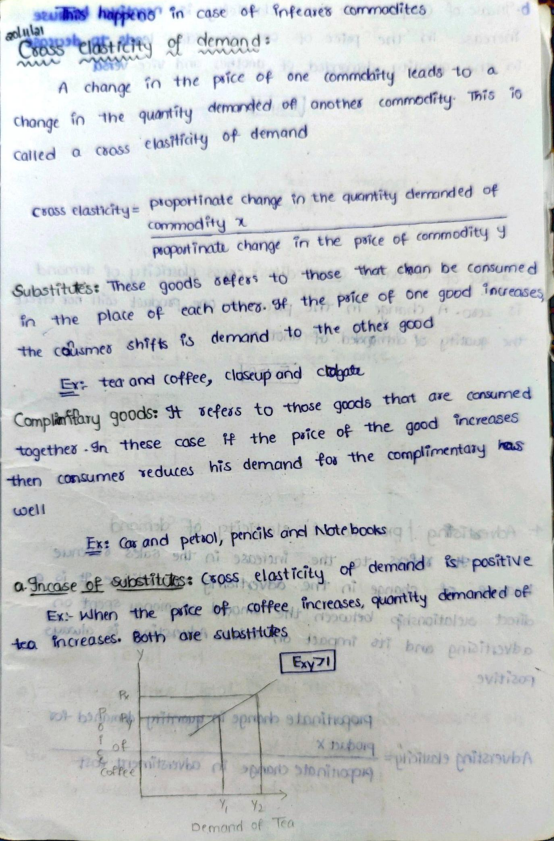 This happens in case of infearer commodites
Cross elasticity of demand:
A change in the price of one commodity leads to a
change in the quantity demanded of another commodity. This is
called a cross elasiticity of demand
Cross elasticity = proportinate change in the quantity demanded of
commodity x
proportinate change in the price of commodity y
Substitutes: These goods refers to those that can be consumed
in the place of each other. If the price of one good increases,
the cousmer shifts is demand to the other good
Ex:- tea and coffee, closeup and colgate
Complimtary goods: It refers to those goods that are consumed
together. In these case if the price of the good increases
then consumer reduces his demand for the complimentary has
well
Ex: Car and petrol, pencils and Notebooks
a. Incase of substitutes: Cross elasticity of demand is positive
Ex:- When the price of coffee, increases, quantity demanded of
tea increases. Both are substitutes
Y
Exy>1
P
r
i
of
Coffee
Y1 Y2
Demand of Tea